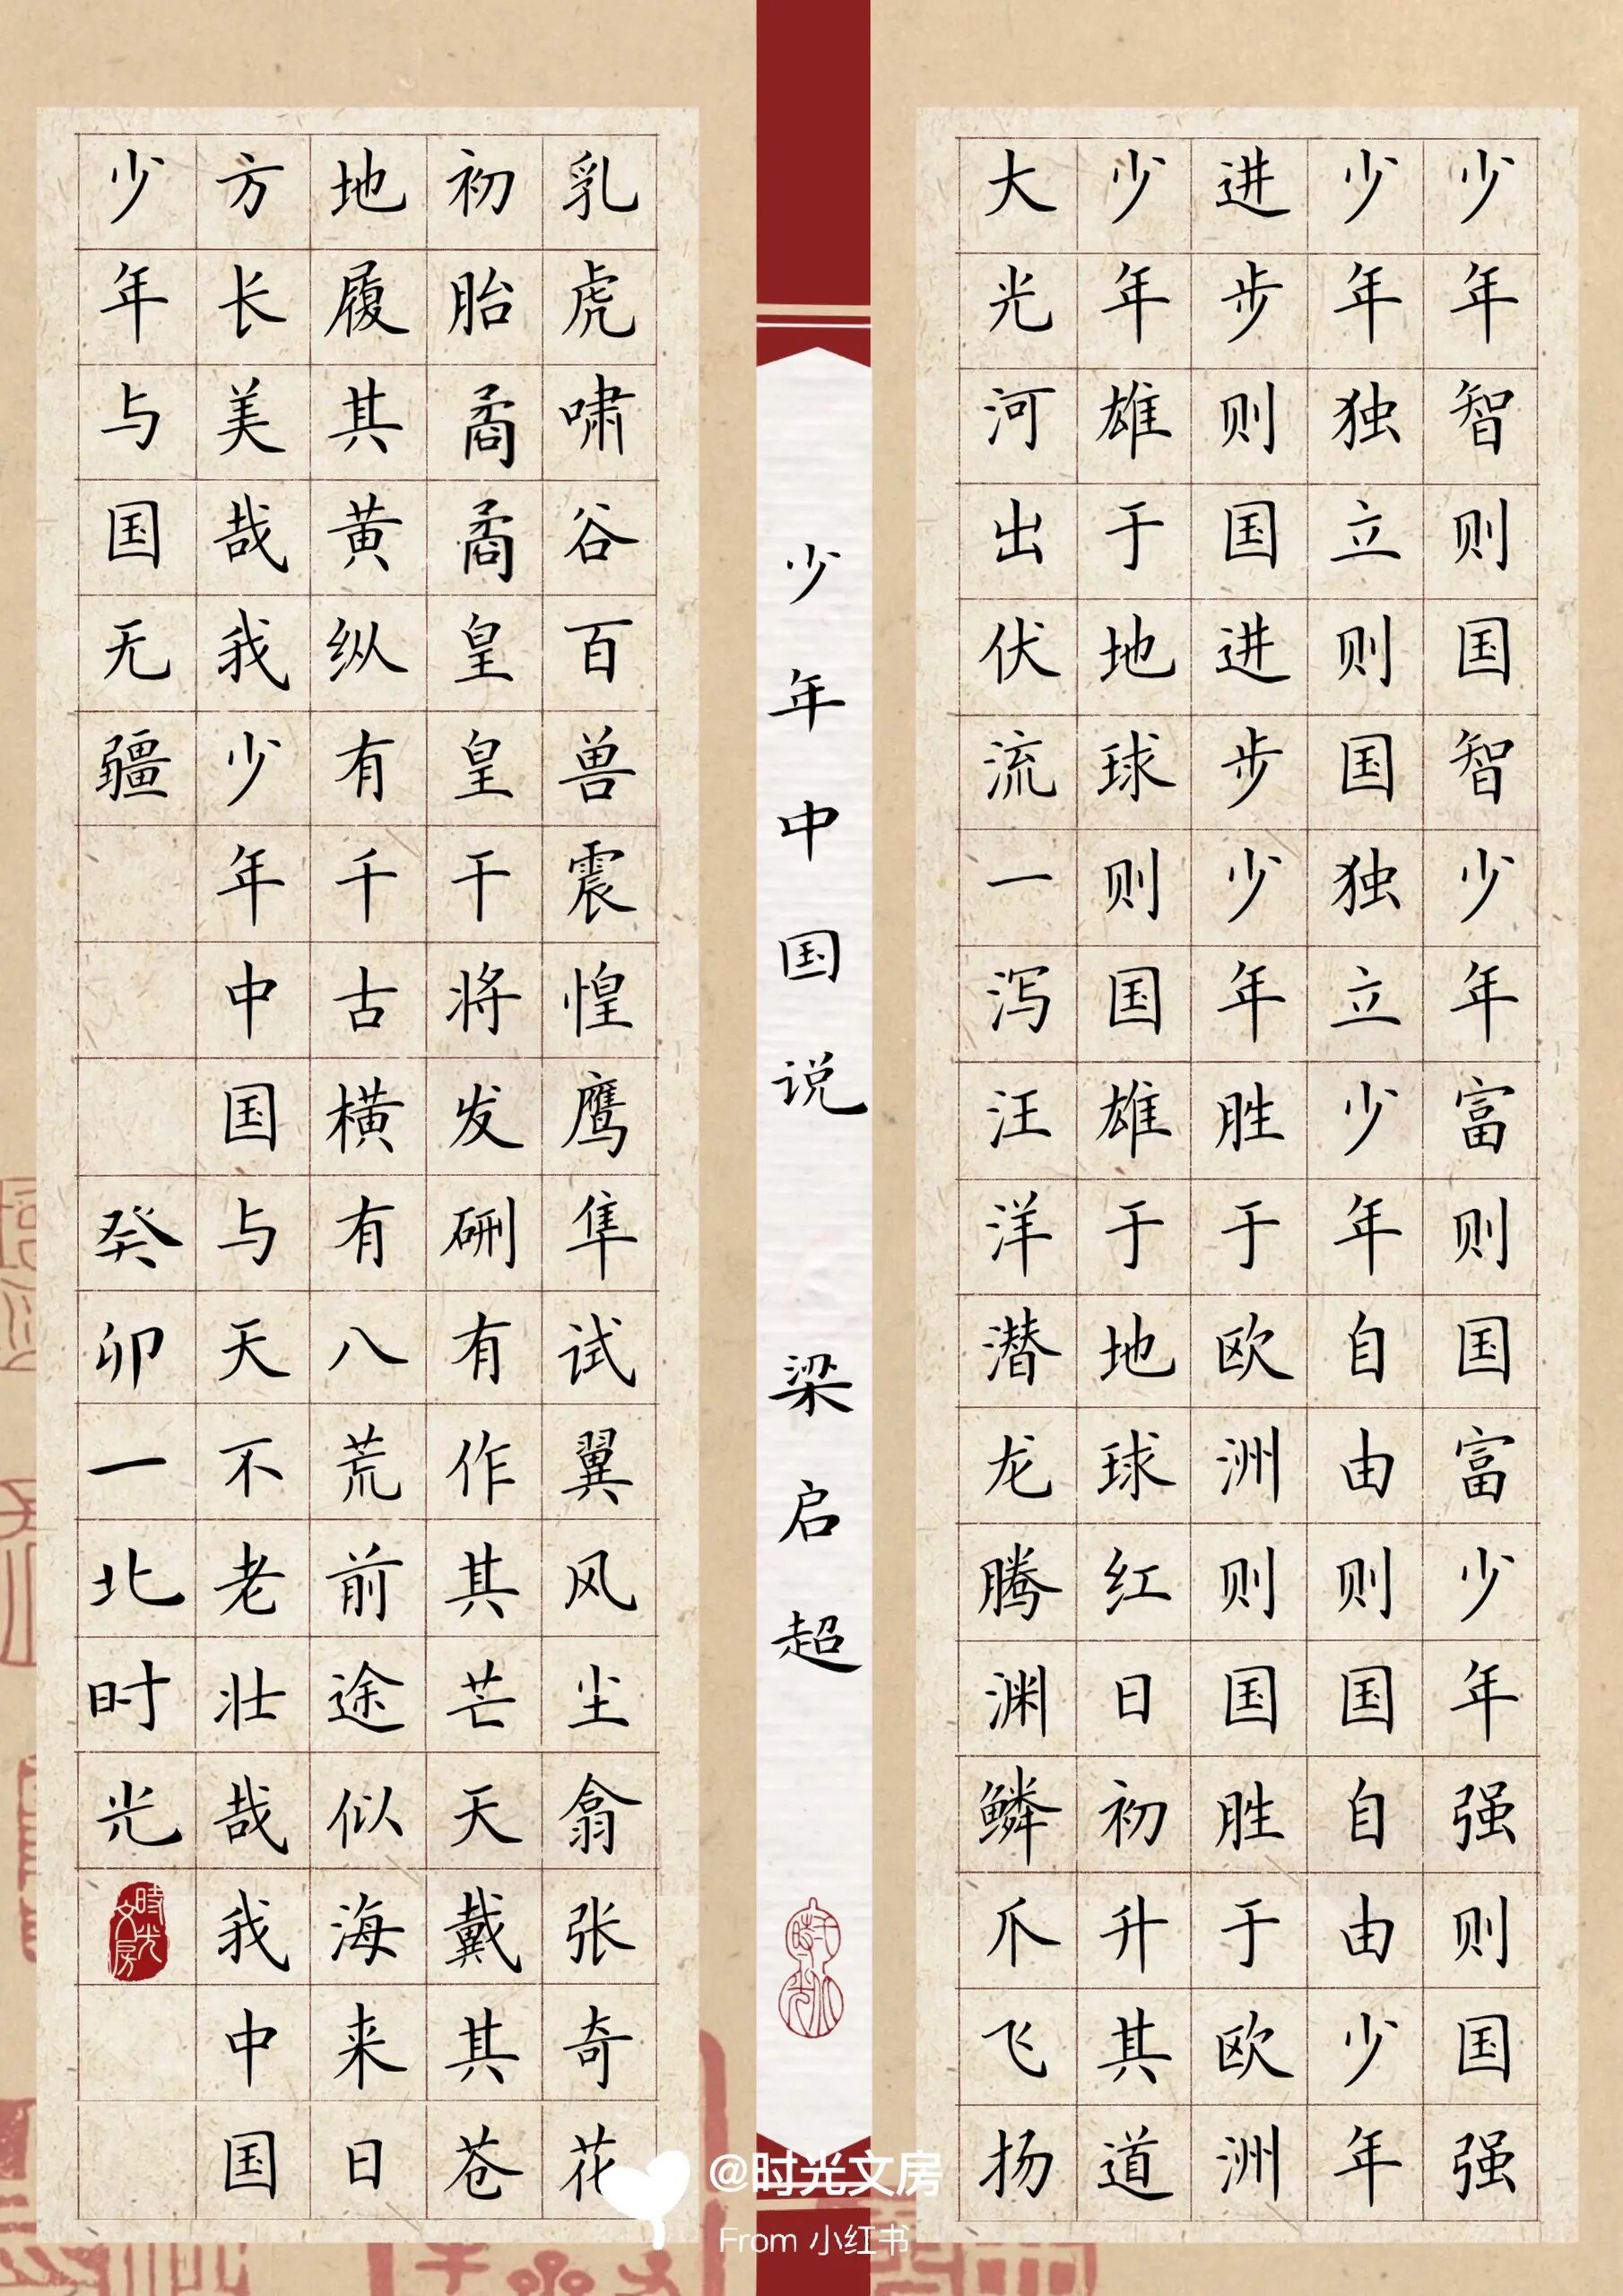 少年智则国智少年富则国富少年强则国强
少年独立则国独立少年自由则国自由少年
进步则国进步少年胜于欧洲则国胜于欧洲
少年雄于地球则国雄于地球红日初升其道
大光河出伏流一泻汪洋潜龙腾渊鳞爪飞扬
少年中国说 梁启超
乳虎啸谷百兽震惶鹰隼试翼风尘翕张奇花
初胎矞矞皇皇干将发硎有作其芒天戴其苍
地履其黄纵有千古横有八荒前途似海来日
方长美哉我少年中国与天不老壮哉我中国
少年与国无疆
癸卯一北时光
時光文房
@时光文房
From 小红书